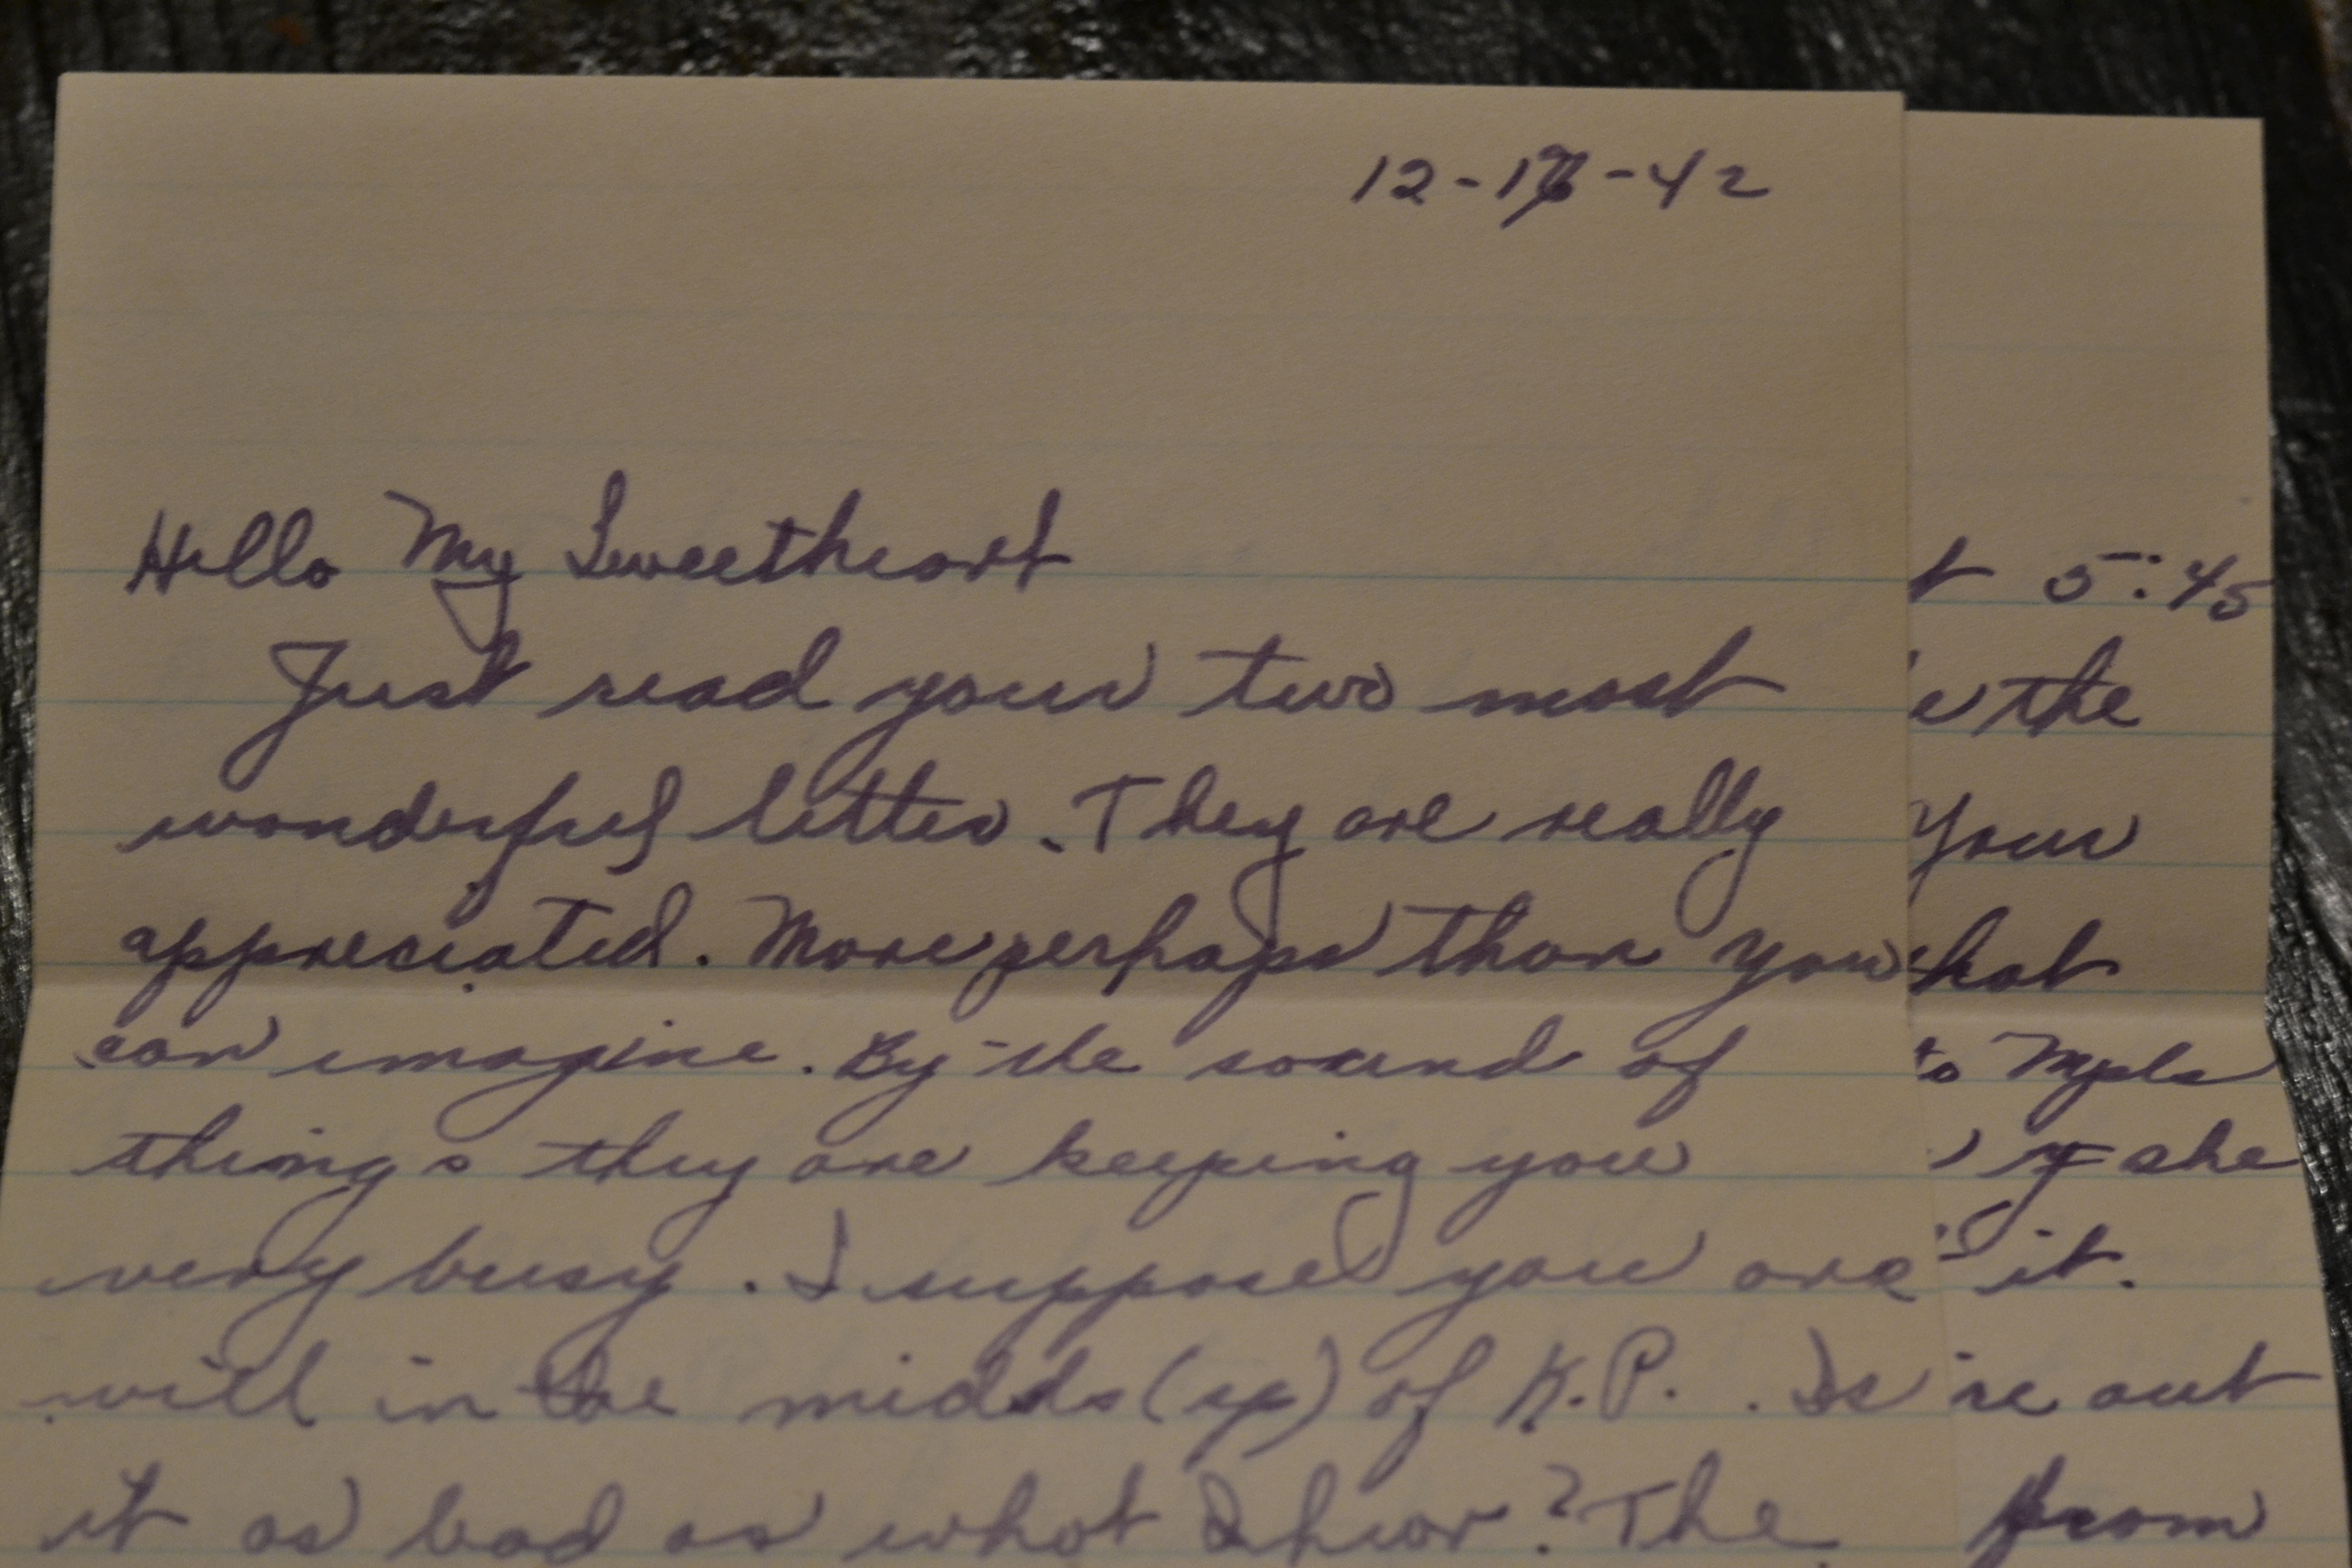 12-16-42
Hello My Sweetheart
Just read your two most
wonderful letters. They are really
appreciated. More perhaps than you
can imagine. By the sound of
things they are keeping you
very busy. I suppose you are
still in the midds (sp) of K.P. . Is
it as bad as what I hear? The
t 5:45
the
Your
hat
to Mpls
if she
it.
re out
from